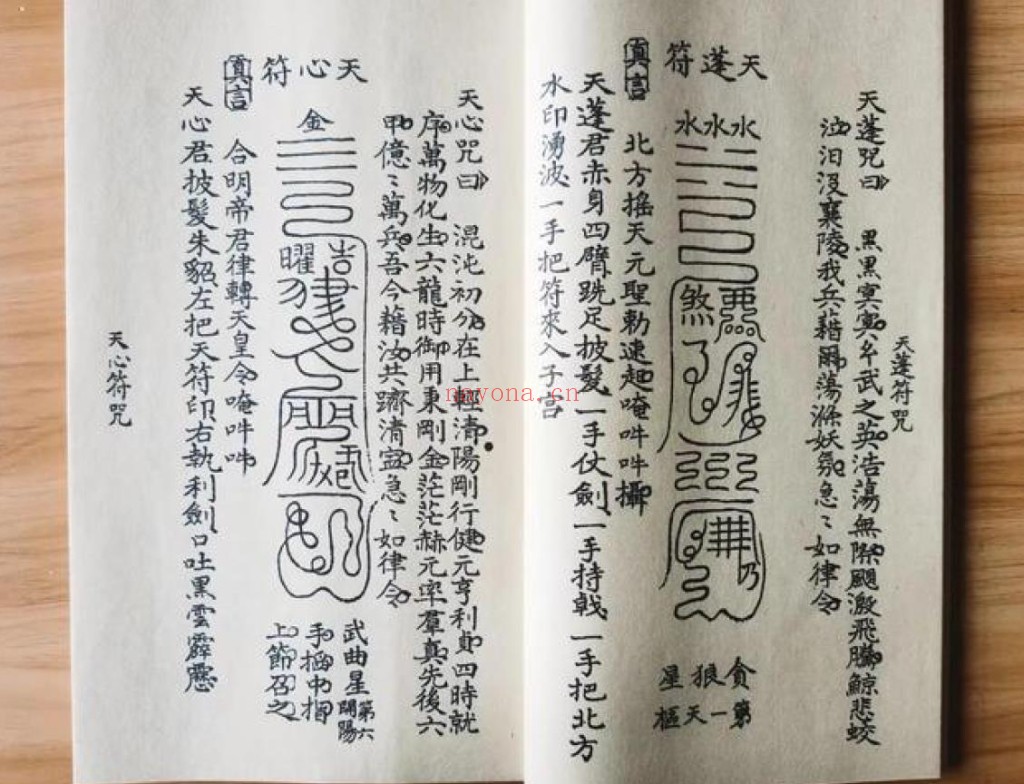 天蓬符咒
天蓬咒曰 黑黑冥冥 武之英浩蕩無際颶激飛騰鯨悲蛟
泣汩沒襄陵我兵藉爾蕩滌妖氛急〻如律令
天蓬符
水水水
惡
煞
貪狼星
第一天樞
真言 北方搖天元聖勅速起唵吽吽攝
天蓬君赤身四臂跣足披髮一手仗劍一手持戟一手把北方
水印湧波一手把符來入子宮
天心咒曰 混沌初分在上輕清陽剛行健元亨利貞四時就
序萬物化生六龍時御用東剛金茫茫赫元率羣真先後六
甲億〻萬兵吾今藉汝共躋清寍急〻如律令
天心符
金
吉
曜
武曲星第六開陽
手掐中指
上節召之
真言 合明帝君律轉天皇令唵吽吽
天心君披髮朱貂左把天符印右執利劍口吐黑雲霹靂
天心符咒
nayona.cn